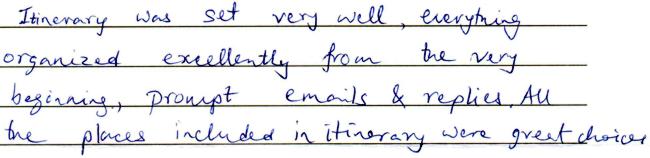 Itinerary was set very well, everything
organized excellently from the very
beginning, prompt emails & replies. All
the places included in itinerary were great choices